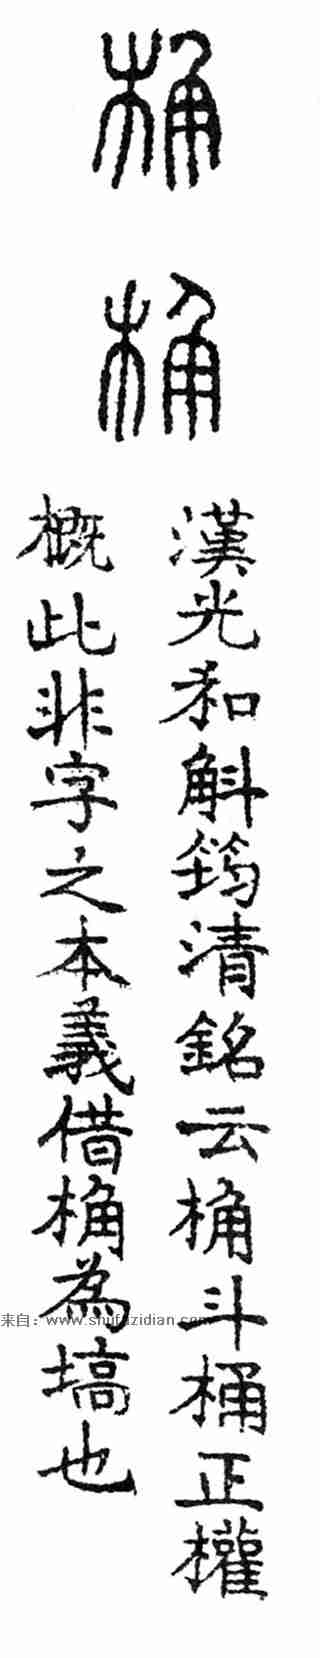 桷
桷
漢光和斛筠清銘云桷斗桶正權
概此非字之本義借桷為塙也
来自：www.shufazidian.com